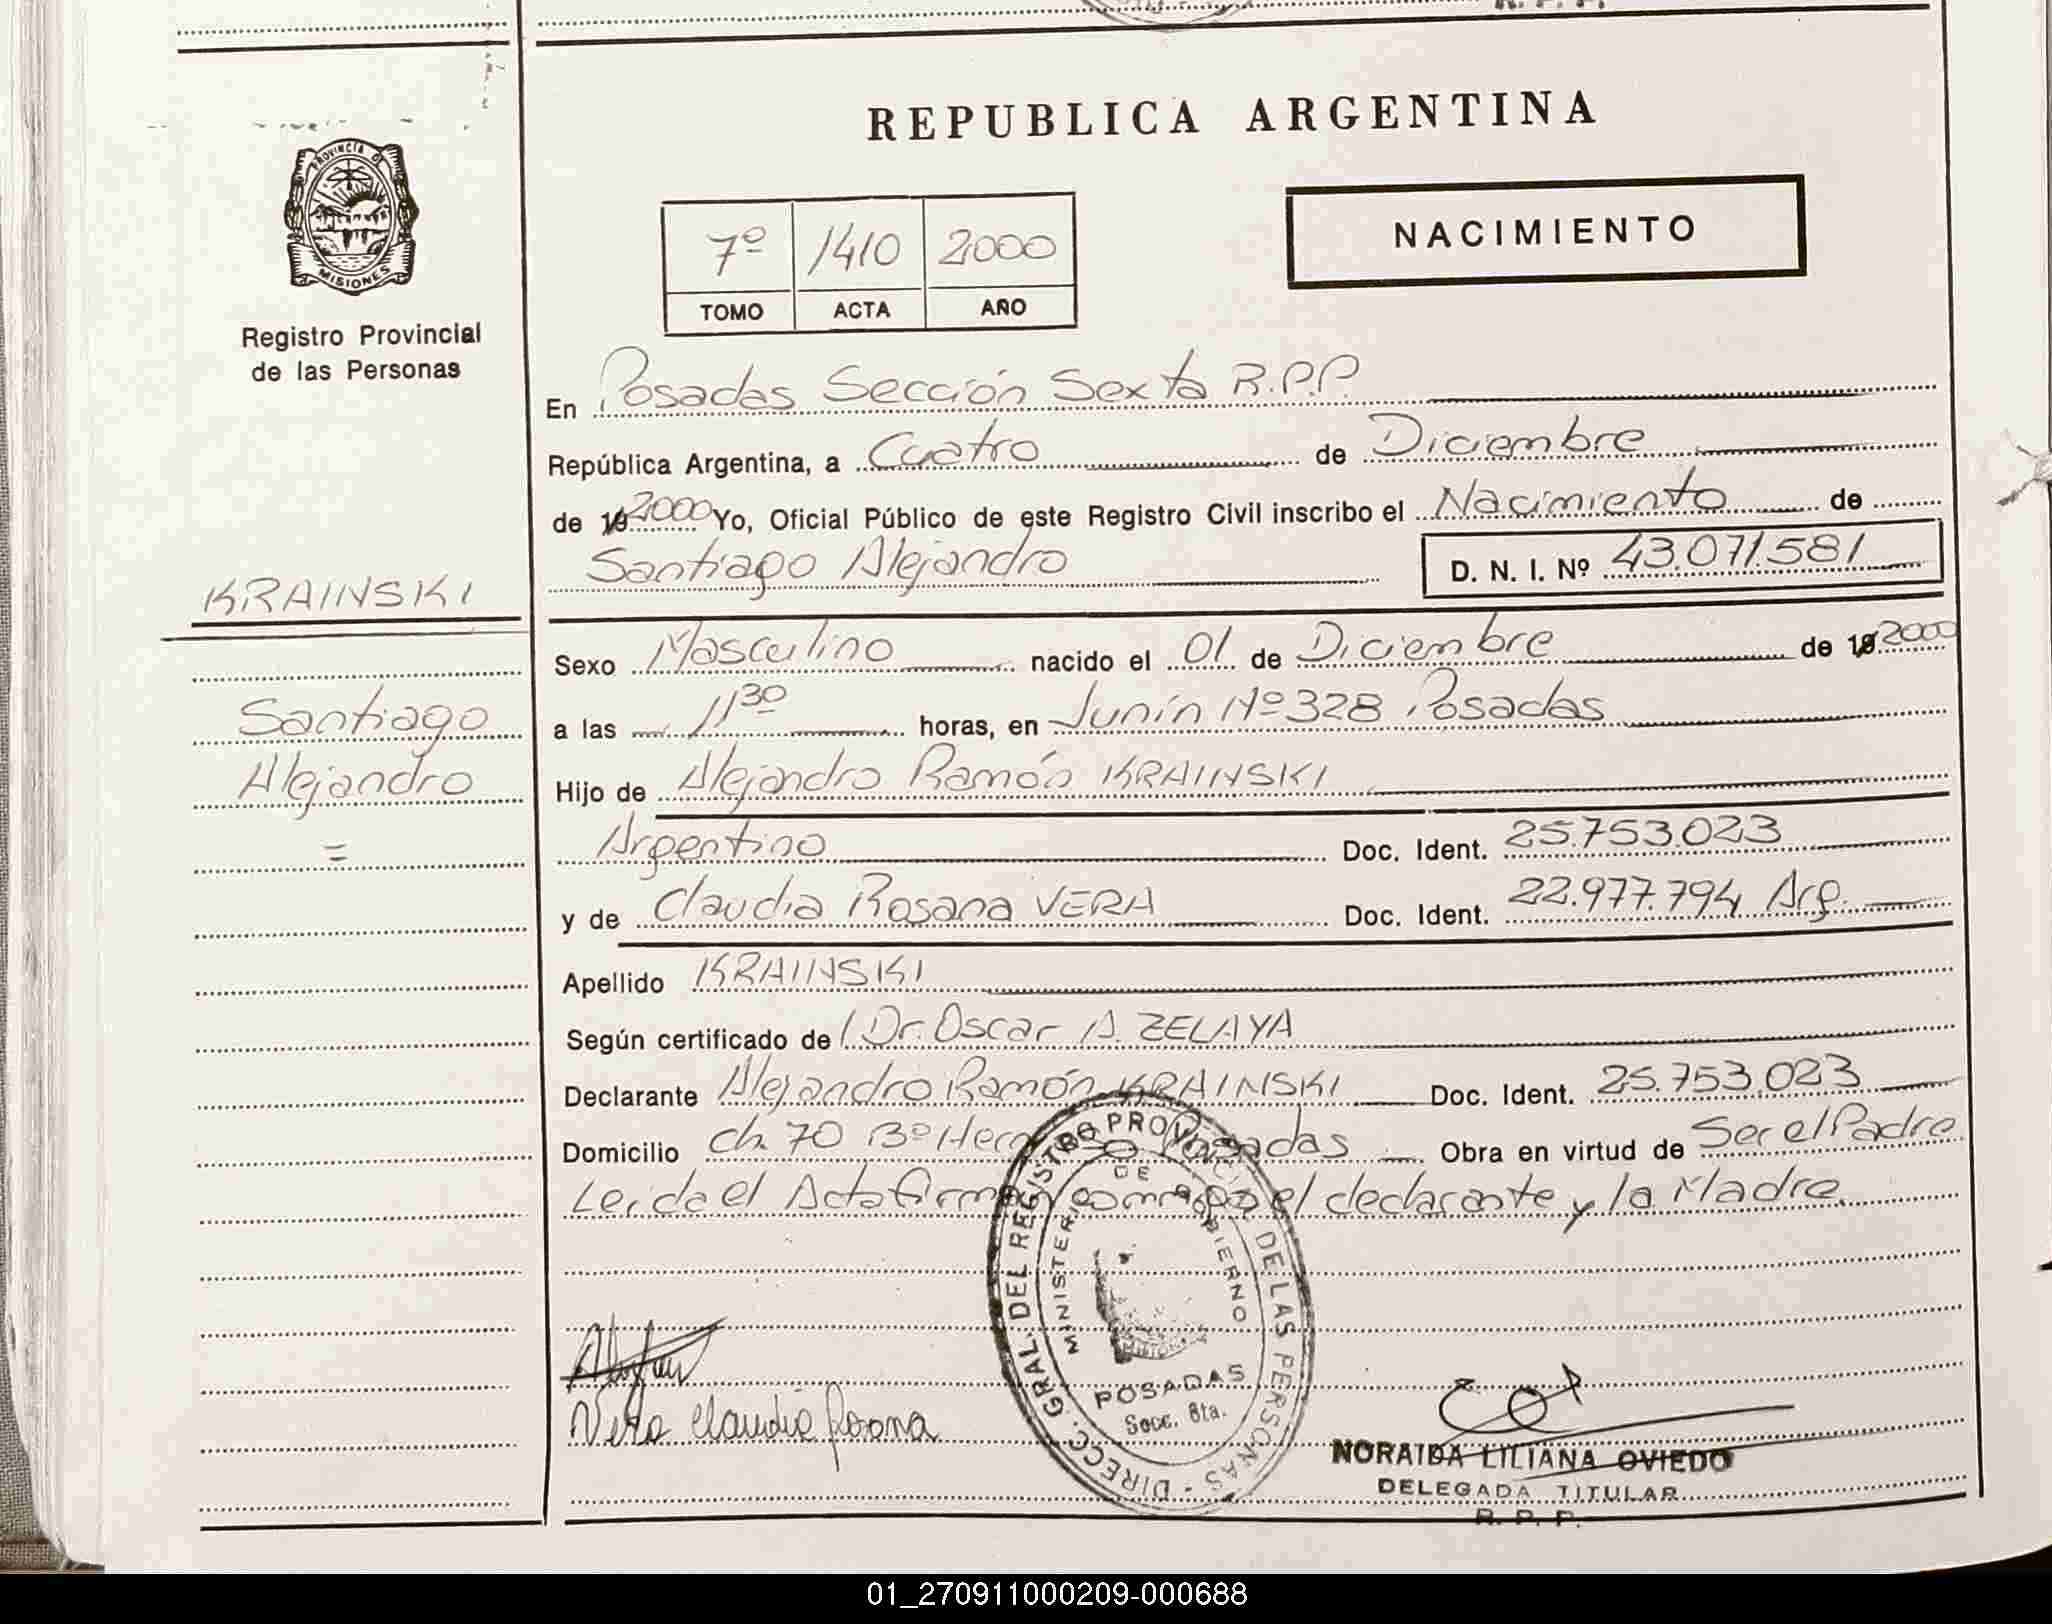 PROVINCIA DE
MISIONES
Registro Provincial
de las Personas
KRAINSKI
Santiago
Alejandro
=
REPUBLICA ARGENTINA
7º 1410 2000
TOMO ACTA AÑO
NACIMIENTO
En Posadas Sección Sexta R.P.P.
República Argentina, a Cuatro de Diciembre
de 19 2000 Yo, Oficial Público de este Registro Civil inscribo el Nacimiento de
Santiago Alejandro D. N. I. Nº 43.071.581
Sexo Masculino nacido el 01 de Diciembre de 19 2000
a las 11 30 horas, en Junín Nº 328 Posadas
Hijo de Alejandro Ramón KRAINSKI
Argentino Doc. Ident. 25.753.023
y de Claudia Rosana VERA Doc. Ident. 22.977.794 Arg.
Apellido KRAINSKI
Según certificado de Dr. Oscar A. ZELAYA
Declarante Alejandro Ramón KRAINSKI Doc. Ident. 25.753.023
Domicilio ch. 70 Bº Posadas Obra en virtud de Ser el Padre
Leida el Acta firman conmigo el declarante y la Madre
DIRECC. GRAL. DEL REGISTRO PROVINCIAL DE LAS PERSONAS
MINISTERIO DE GOBIERNO
POSADAS
Secc. 6ta.
Vera Claudia Rosana
NORAIDA LILIANA OVIEDO
DELEGADA TITULAR
R. P. P.
01_270911000209-000688